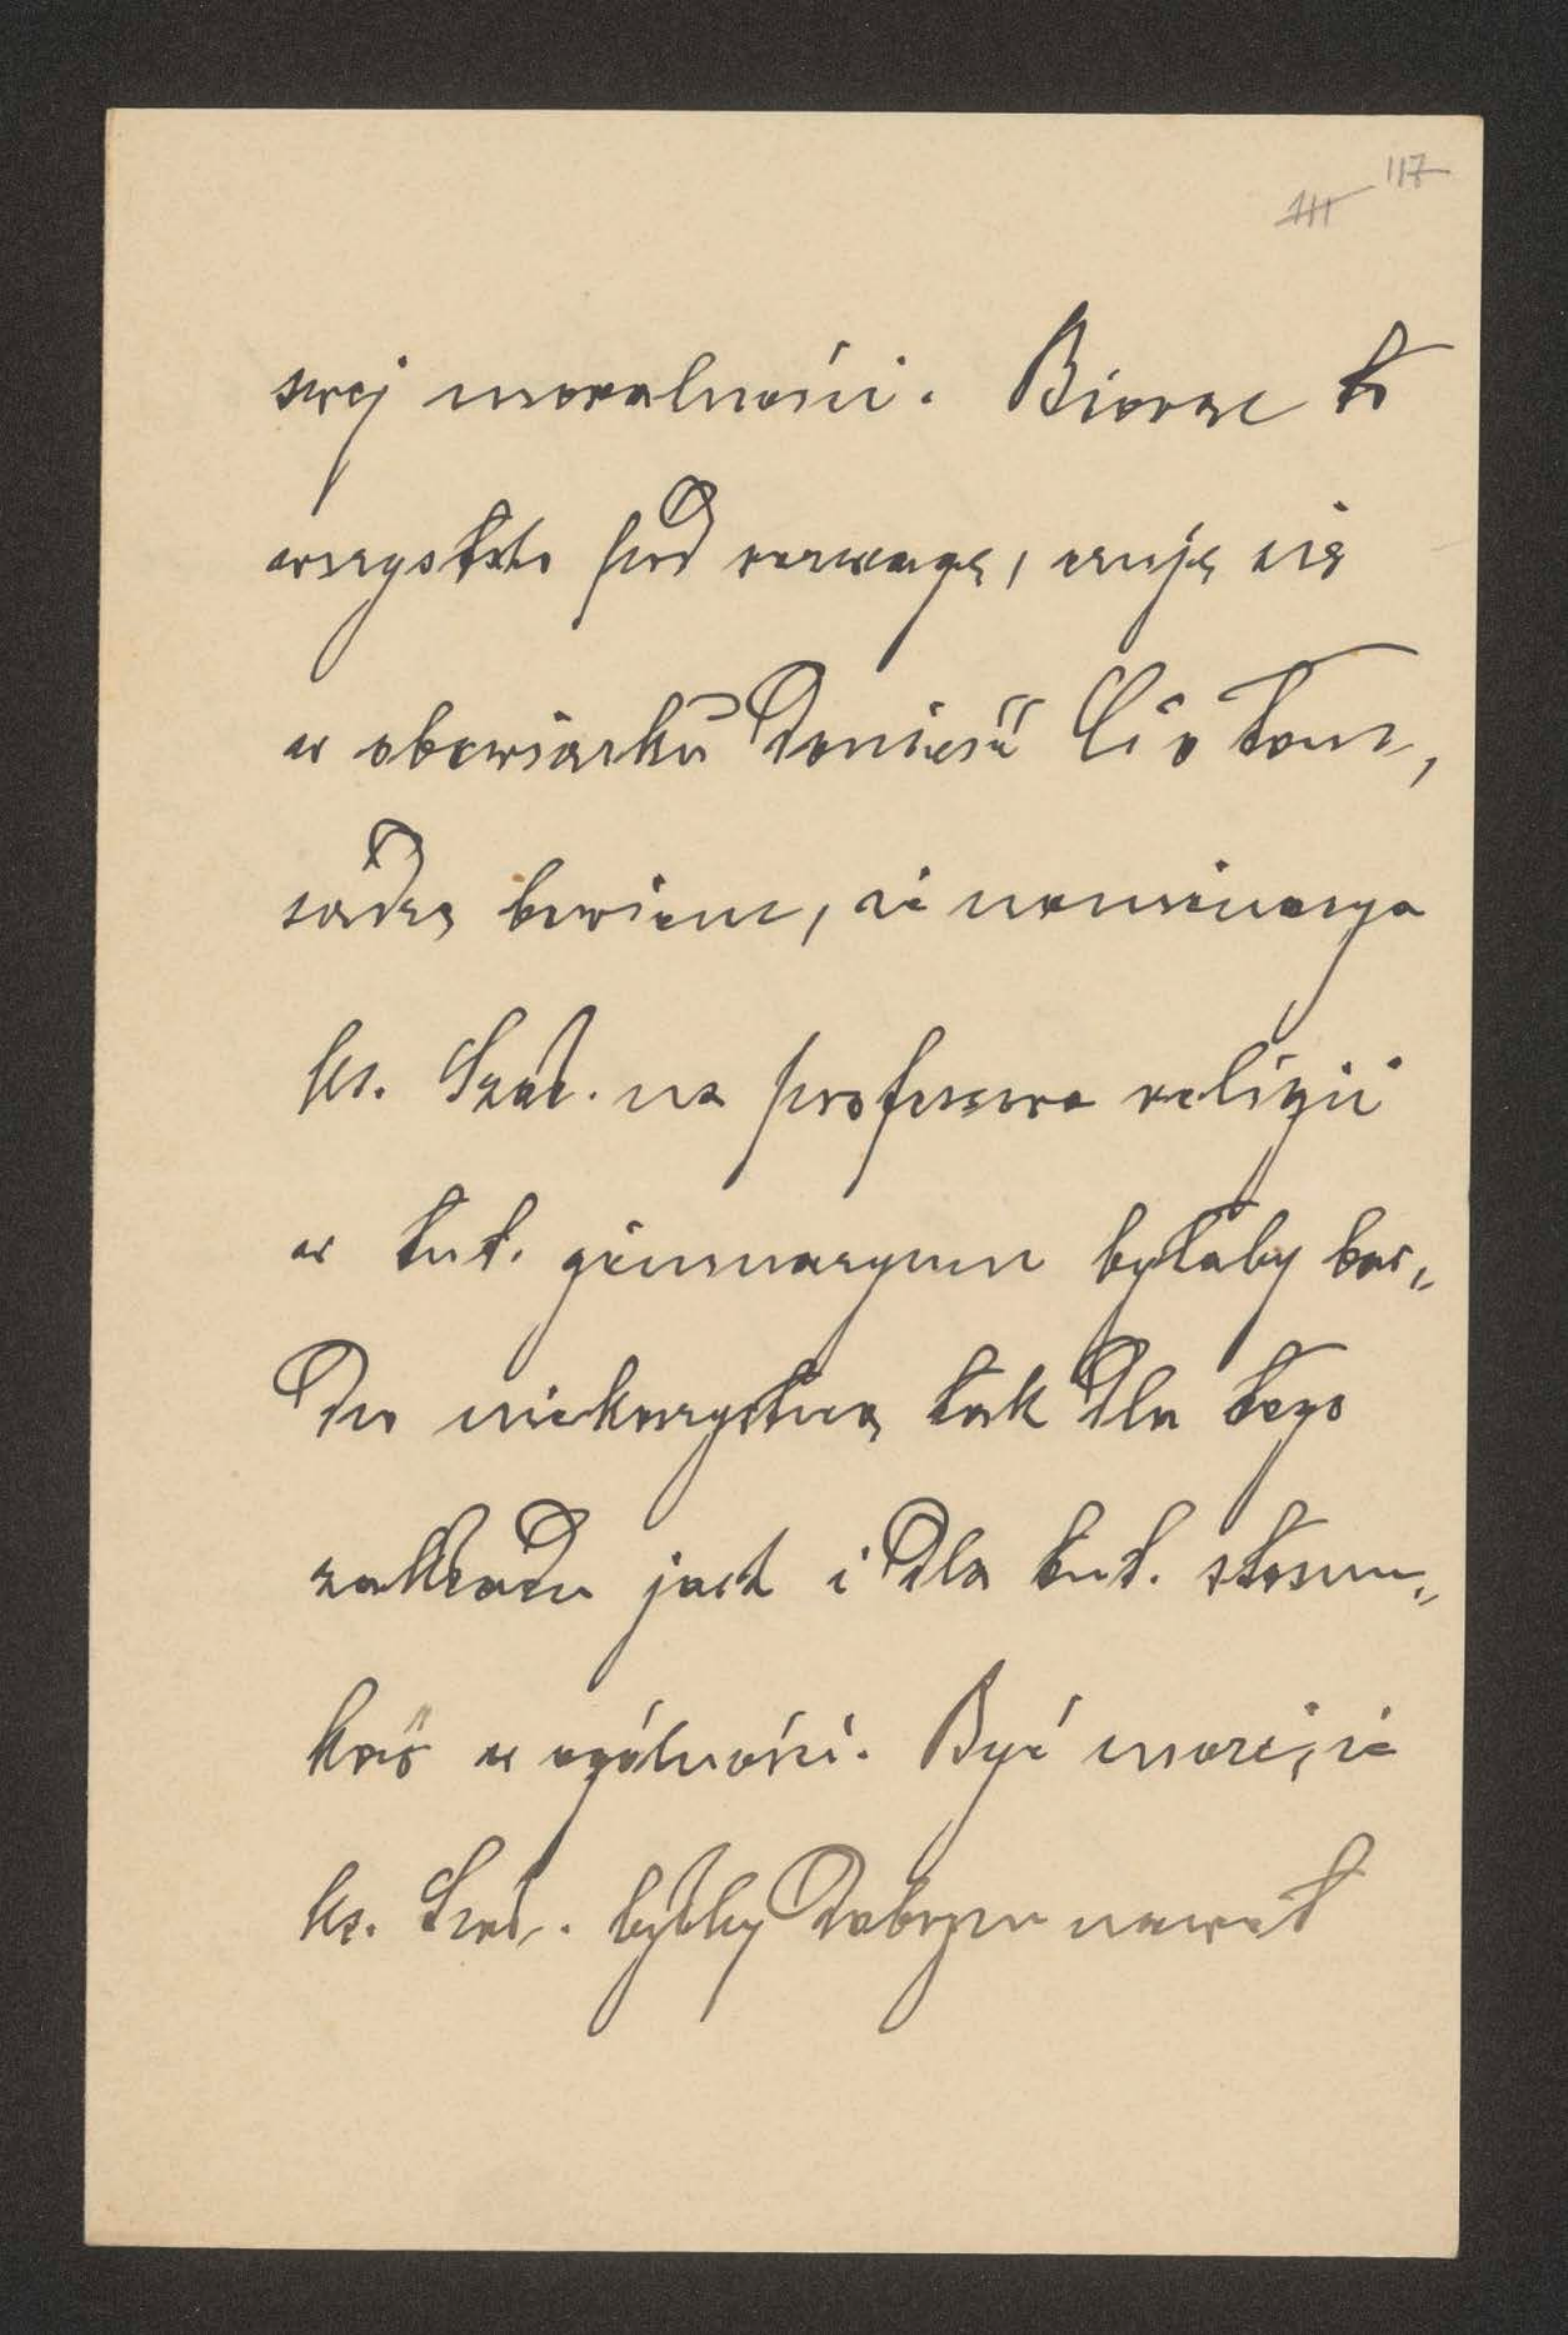 117
111
swej moralności. Biorąc to
wszystko pod rozwagę, czuję się
w obowiązku donieść Ci o tem,
sądzę bowiem, że nominacya
ks. Szad. na professora religii
w tut. gimnazyum byłaby bar„
dzo niekorzystną tak dla tego
zakładu jak i dla tut. stosun„
ków w ogólności. Być może, że
ks. Szad. byłby dobrym nawet